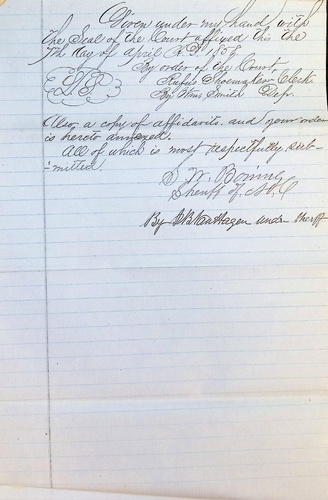 Given under my hand, with
The Seal of the Court affixed this the
7th day of April A.D. 185
By order of the Court
L.S.
Rufus Shoemaker Clerk
By Smith Dep
Also a copy of affidavits and your order
is hereto annexed.
All of which is most respectfully sub-
-mitted.
S. W. Boring
Sheriff of N. C
By VanHagen under Sheriff